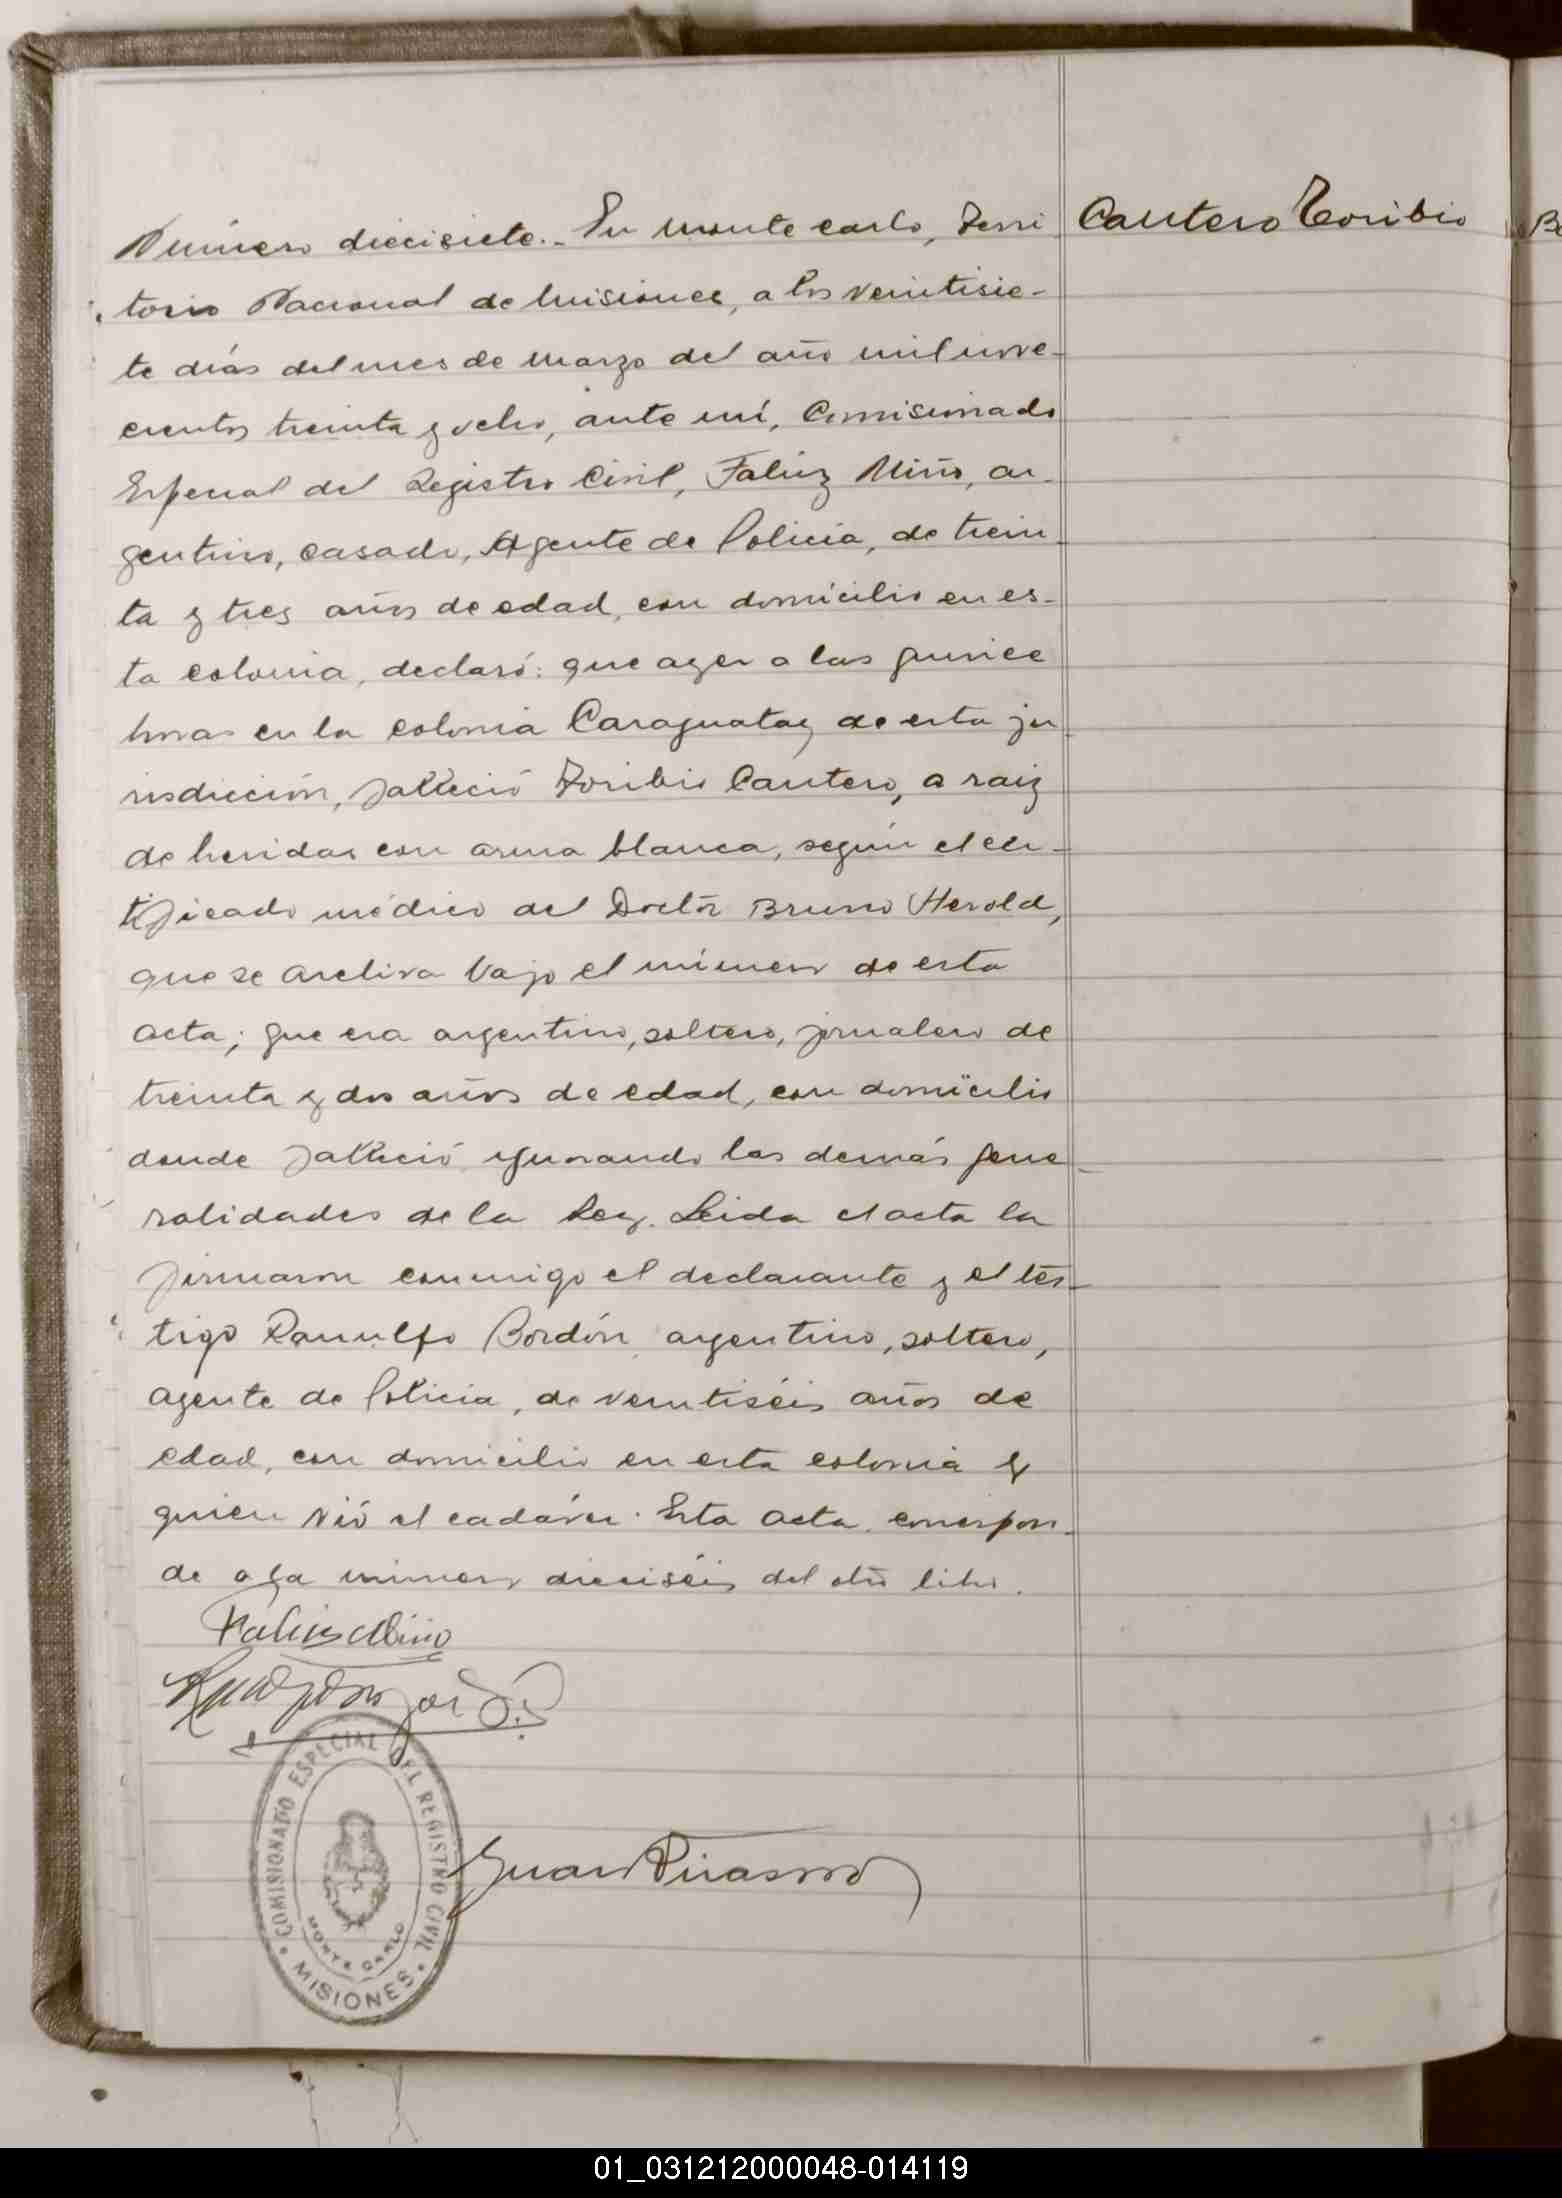 Número diecisiete.- En Monte Carlo, Terri
Cantero Toribio
torio Nacional de Misiones, a los veintisie-
te días del mes de Marzo del año mil nove-
cientos treinta y ocho, ante mí, Comisionado
Especial del Registro Civil, Faliz Miño, ar-
gentino, casado, Agente de Policia, de trein-
ta y tres años de edad, con domicilio en es-
ta colonia, declaró: que ayer a las quince
horas en la colonia Caraguatay de esta ju-
risdicción, falleció Toribio Cantero, a raiz
de heridas con arma blanca, según el cer-
tificado médico del Doctor Bruno Herold,
que se archiva bajo el número de esta
acta; que era argentino, soltero, jornalero de
treinta y dos años de edad, con domicilio
donde falleció ignorando las demás gene-
ralidades de la Ley. Leida el acta la
firmaron conmigo el declarante y el tes-
tigo Ranulfo Bordón, argentino, soltero,
agente de Policia, de veintiséis años de
edad, con domicilio en esta colonia y
quien vió el cadáver. Esta acta correspon-
de a la número dieciséis del otro libro.
Faliz Miño
COMISIONADO ESPECIAL DEL REGISTRO CIVIL
MONTE CARLO
MISIONES
Juan
01_031212000048-014119